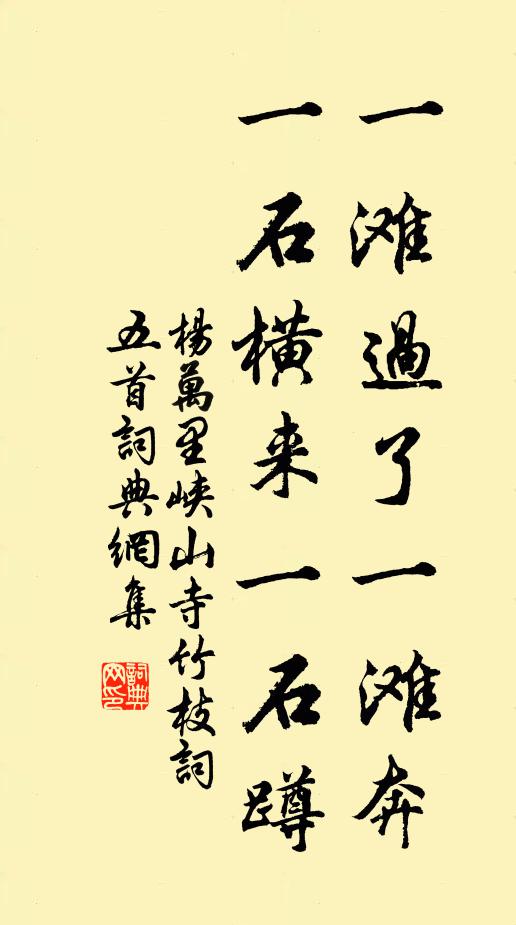 一滩過了一滩奔
一石横来一石蹲
楊萬里峡山寺竹枝詞
五首詞典網集
詞典网印